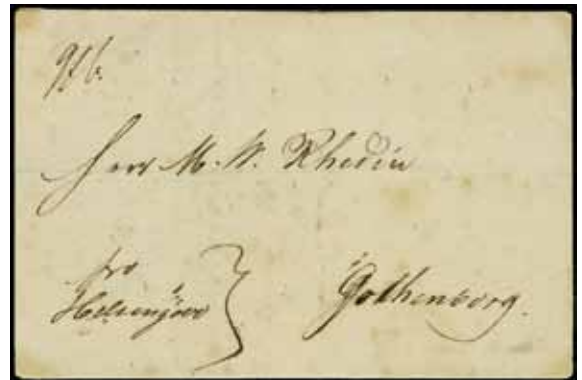 Herr M. W. Rhedin
pro
Helsingöer
Gothenborg.